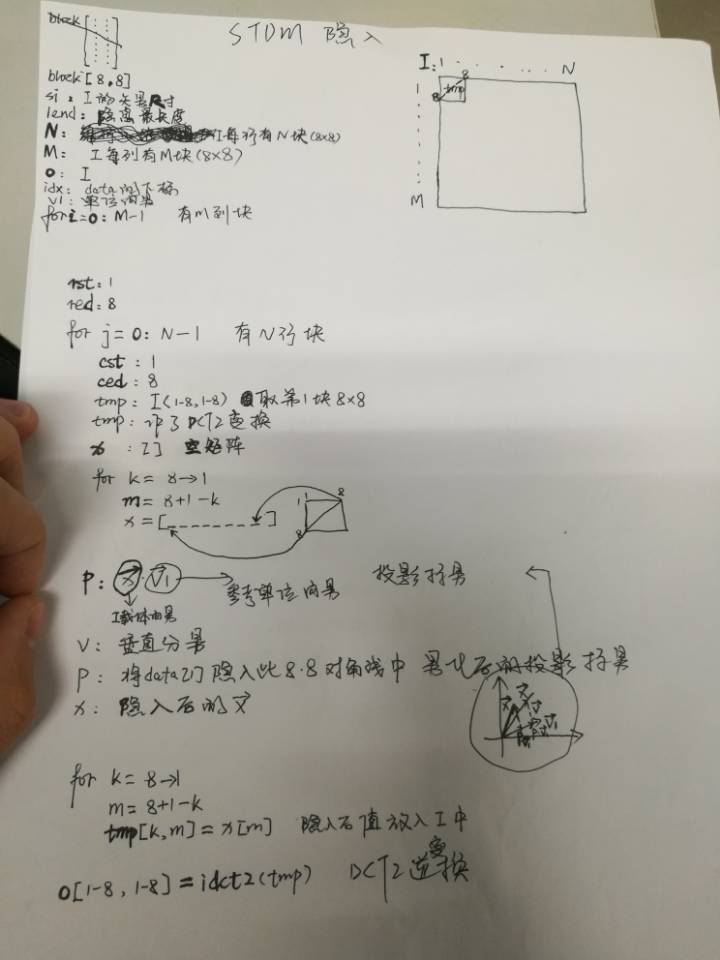 STDM 隐入
block
block[8,8]
si: I的矢量尺寸
lend: 隐藏最长度
N: I每行有N块(8×8)
M: I每列有M块(8×8)
O: I
idx: data的下标
V1: 单位向量
for i=0: M-1 有m列块
I: 1 · · · · · · N
1
8
8
tmp
M
rst: 1
red: 8
for j=0: N-1 有N行块
cst: 1
ced: 8
tmp: I(1-8,1-8) 取第1块8×8
tmp: 评了DCT2变换
x: [] 空矩阵
for k= 8→1
m= 8+1-k
x=[_ _ _ _ _ _ _ _]
1
8
8
P: x · V1 → 参考单位向量 投影标量
I载体向量
V: 垂直分量
P: 将data[i]隐入此8·8对角线中 量化后的投影标量
x: 隐入后的x
for k= 8→1
m= 8+1-k
tmp[k,m] = x[m] 隐入后值放入I中
O[1-8, 1-8] = idct2(tmp) DCT2逆变换